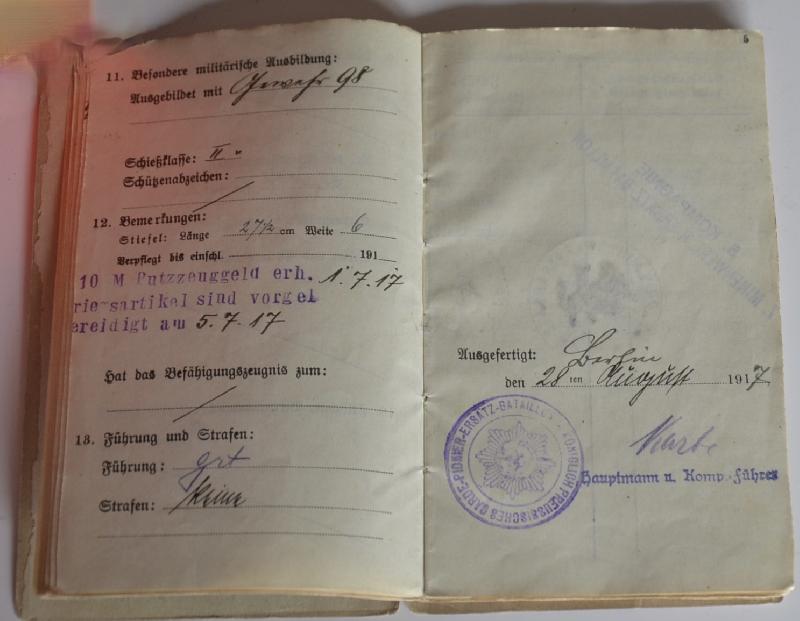 11. Besondere militärische Ausbildung:
Ausgebildet mit Gewehr 98
Schießklasse: II
Schützenabzeichen:
12. Bemerkungen:
Stiefel: Länge 27½ cm Weite 6
Verpflegt bis einschl. 191
10 M Putzzeuggeld erh. 1.7.17
rie sartikel sind vorgel
ereidigt am 5.7.17
Hat das Befähigungszeugnis zum:
13. Führung und Strafen:
Führung: gut
Strafen: keine
Ausgefertigt: Berlin
den 28ten August 1917
KÖNIGLICH PREUSSISCHES GARDE-PIONIER-ERSATZ-BATAILLON
Hauptmann u. Komp.-Führer